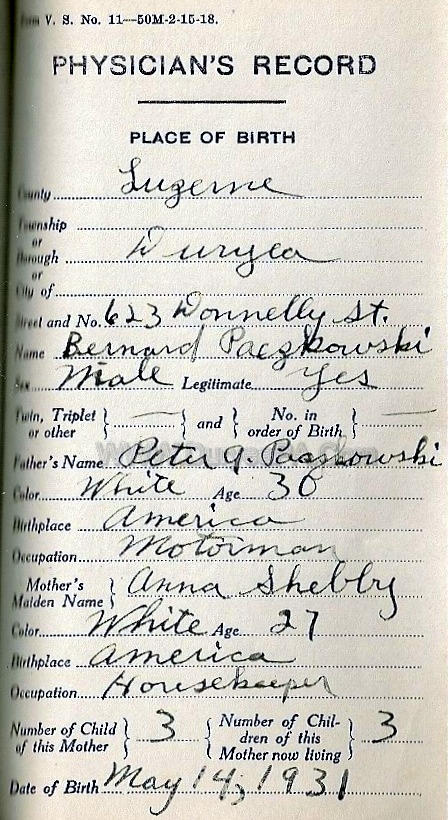 Form V. S. No. 11—50M-2-15-18.
PHYSICIAN'S RECORD
PLACE OF BIRTH
County Luzerne
Township
or
Borough Duryea
or
City of
Street and No. 623 Donnelly St.
Name Bernard Paczkowski
Sex Male Legitimate Yes
Twin, Triplet
or other } — and { No. in
order of Birth, } —
Father's Name Peter J. Paczkowski
Color White Age 30
Birthplace America
Occupation Motorman
Mother's
Maiden Name } Anna Shebby
Color White Age 27
Birthplace America
Occupation Housekeeper
Number of Child
of this Mother } 3 { Number of Chil-
dren of this
Mother now living } 3
Date of Birth May 14, 1931